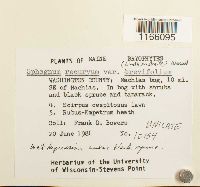 1166095
PLANTS OF MAINE
BRYOPHYTES
Sphagnum recurvum var. brevifolium
WASHINGTON COUNTY: Machias bog, 10 mi.
SE of Machias. In bog with shrubs
and black spruce and tamarack.
4. Scirpus cespitosus lawn
5. Rubus-Empetrum heath
Coll: Frank D. Bowers
20 June 1981
under black spruce.
Herbarium of the University
of Wisconsin-Stevens Point